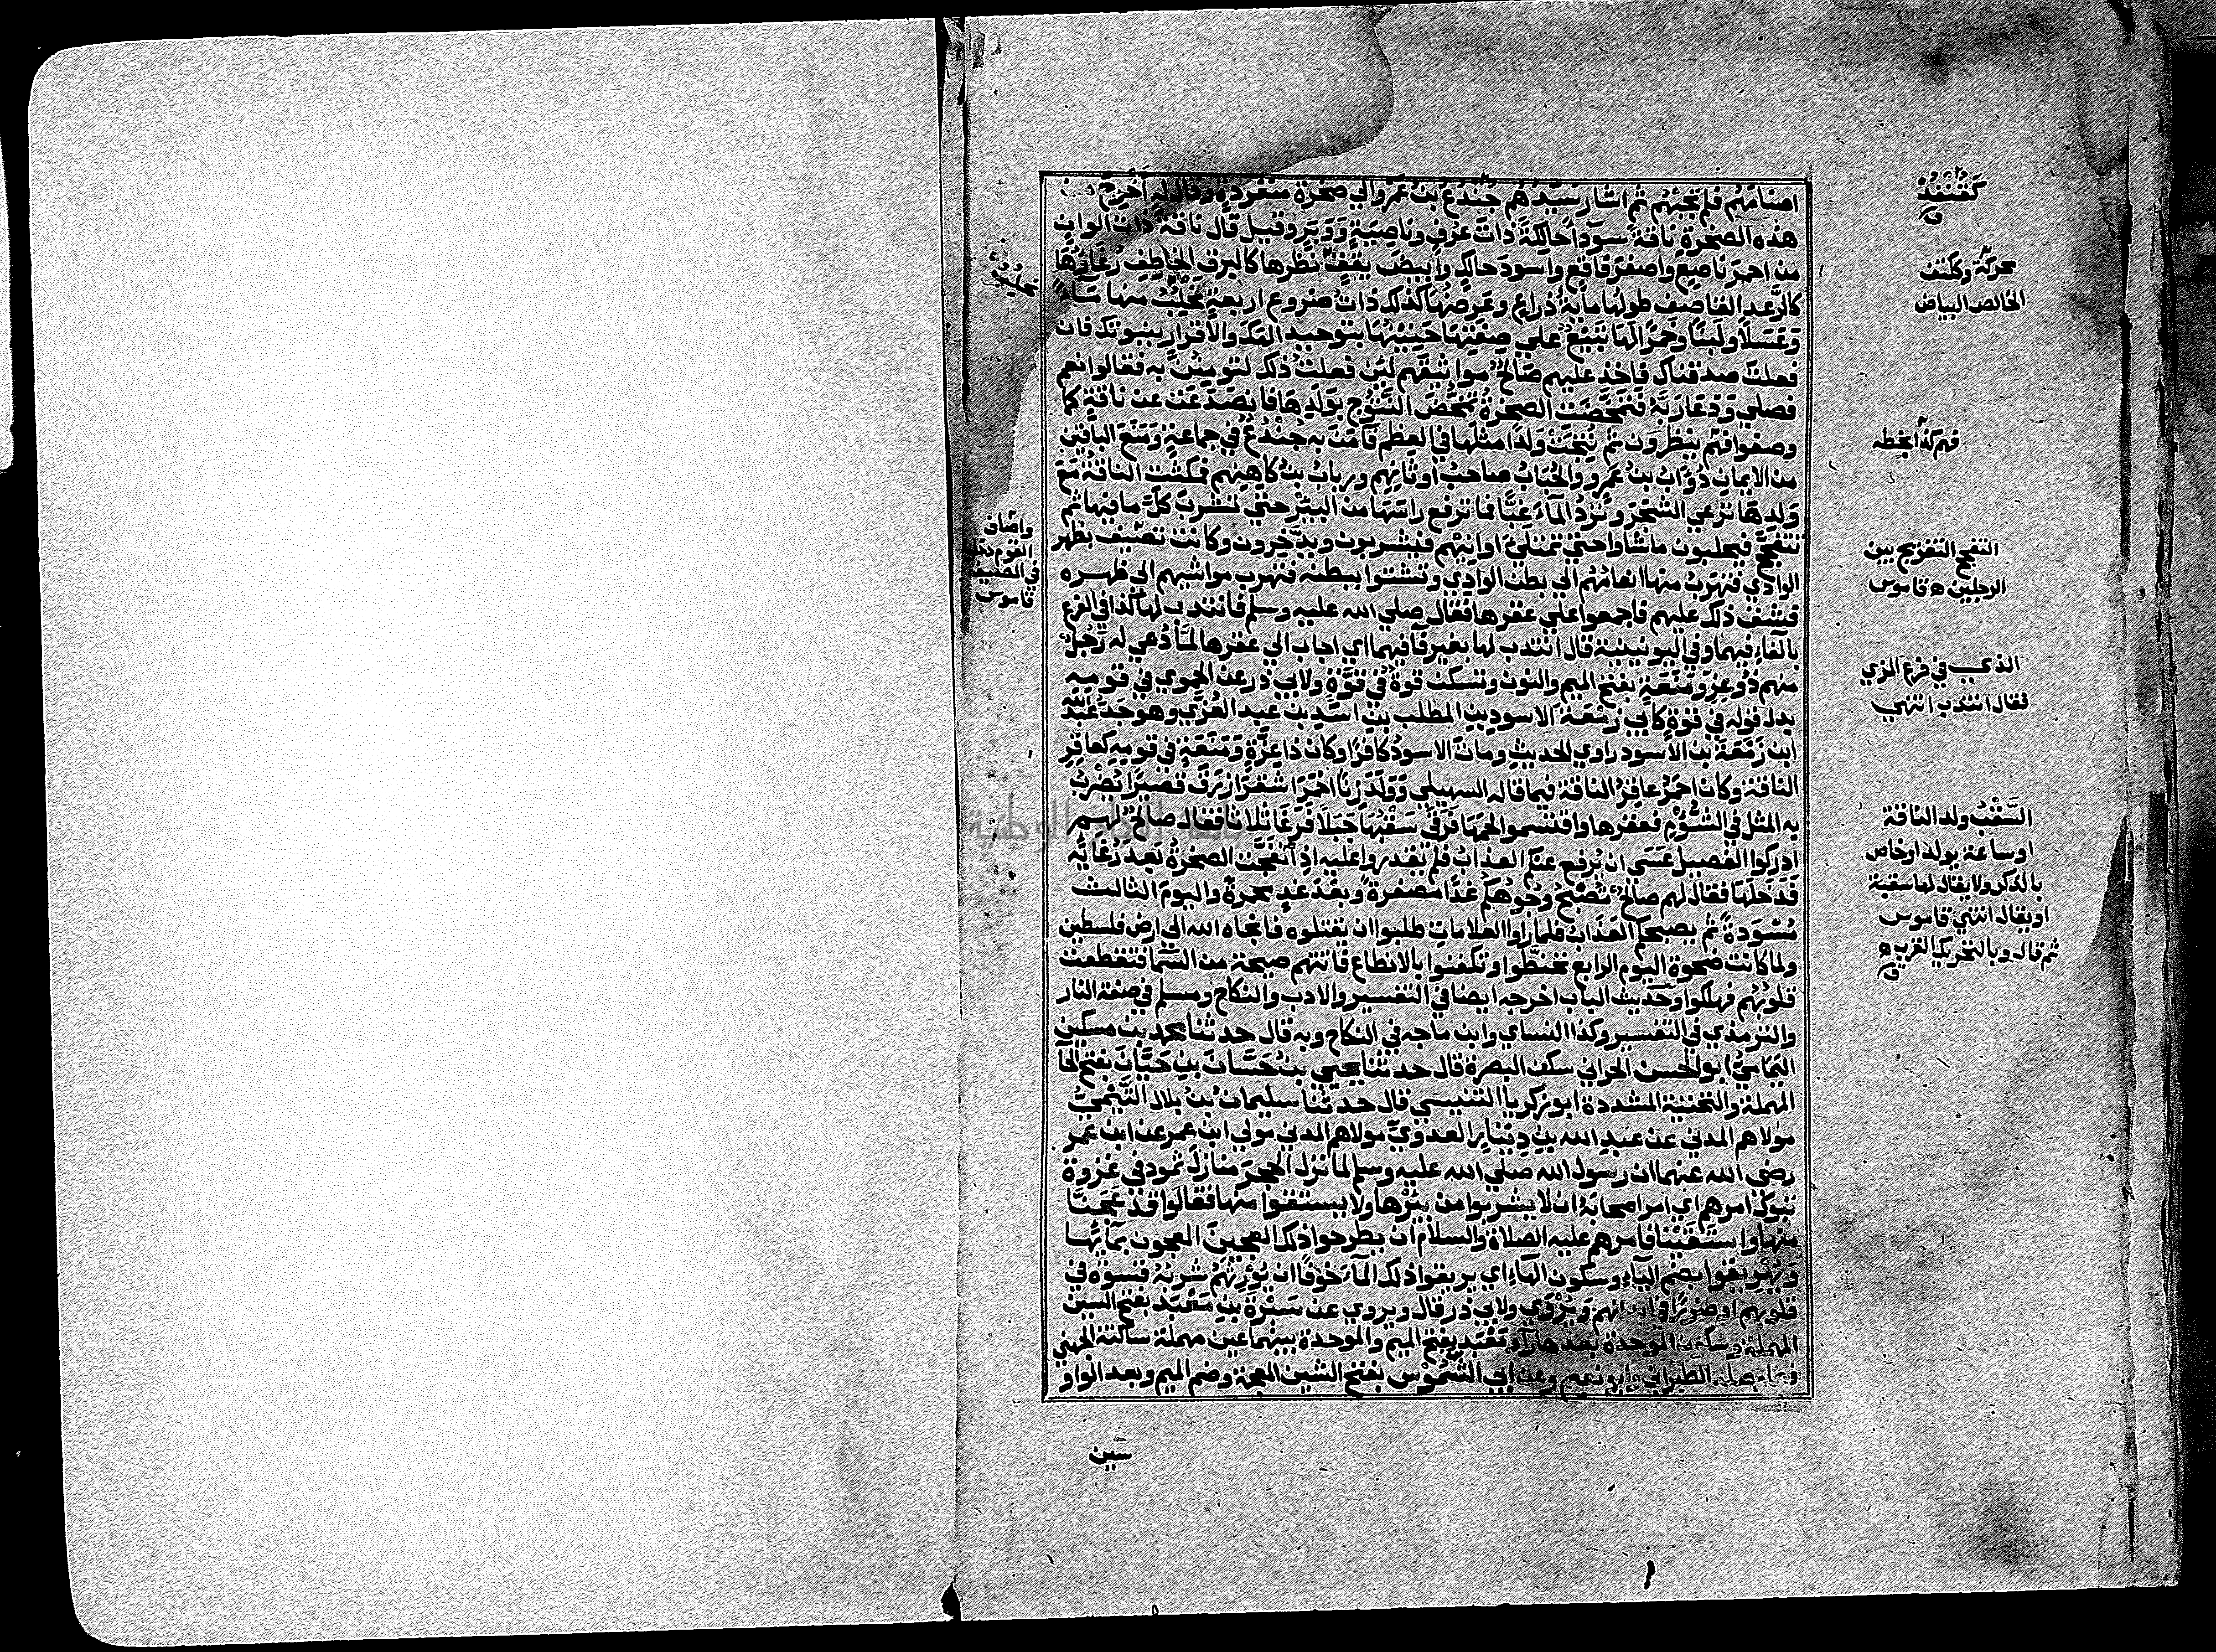 اصنامهم فلم تجبهم ثم اشار سيدهم جندع بن عمرو الي صخرة منفردة وقال له اخرج من
هذه الصخرة ناقة سوداً حالكة ذات عرف وناصية ووبر وقيل قال ناقة ذات الوان
من احمر ناصع واصفر فاقع واسود حالك وابيض يقق نظرها كالبرق الخاطف رغاؤها
كالرعد القاصف طولها ماية ذراع وعرضها كذلك ذات ضروع اربعة نحلب منها ماءً
وعسلاً ولبناً وخمراً لها تبيع علي صفتها حنينها بتوحيد الهك والاقرار بنبوتك فان
فعلت صدقناك فاخذ عليهم صالح مواثيقهم لئن فعلت ذلك لتومنن به فقالوا نعم
فصلي ودعا ربه فتمخضت الصخرة تمخض النتوج بولدها فانصدعت عن ناقة كما
وصفوا فهم ينظرون ثم نتجت ولداً مثلها في العظم فامن به جندع في جماعة ومنع الباقين
من الايمان ذؤاب بن عمرو والحباب صاحب اوثانهم ورباب بن كاهنهم فمكثت الناقة مع
ولدها ترعي الشجر وترد الماء غباً فما ترفع راسها من البير حتي تشرب كل ما فيها ثم
تتفحج فيحلبون ما شاوا حتي تمتلي اوانيهم فيشربون ويدخرون وكانت تصيف بظهر
الوادي فتهرب منها انعامهم الي بطن الوادي وتشتوا ببطنه فتهرب مواشيهم الي ظهره
فشق ذلك عليهم فاجمعوا علي عقرها فقال صلي الله عليه وسلم فانتدب لها كذا في الفرع
بالفاء فيهما وفي اليونينية قال انتدب لها بغير فا فيهما اي اجاب الي عقرها لما دعي له رجل
منهم ذو عز ومنعة بفتح الميم والنون وتسكن قوة في قوة ولابي ذر عن الحموي في قومه
بدل قوله في قوة كابي زمعة الاسود بن المطلب بن اسد بن عبد العزي وهو جد عبد الله
ابن زمعة بن الاسود راوي الحديث ومات الاسود كافراً وكان ذا عزة ومنعة في قومه كعاقر
الناقة وكان احمر عاقر الناقة فيما قاله السهيلي وولد زنا احمر اشقر ازرق قصيراً يضرب
به المثل في الشؤم فعقرها واقتسموا لحمها فرقي سقبها جبلاً فرغا ثلاثا فقال صالح لهم
ادركوا الفصيل عسي ان يرفع عنكم العذاب فلم يقدروا عليه اذ انفجت الصخرة بعد رغايه
فدخلها فقال لهم صالح تصبح وجوهكم غداً مصفرة وبعد غد محمرة واليوم الثالث
مسودة ثم يصبحكم العذاب فلما راوا العلامات طلبوا ان يقتلوه فانجاه الله الي ارض فلسطين
ولما كانت ضحوة اليوم الرابع تحنطوا وتكفنوا بالانطاع فاتتهم صيحة من السما فتقطعت
قلوبهم فهلكوا وحديث الباب اخرجه ايضا في التفسير والادب والنكاح ومسلم في صفة النار
والترمذي في التفسير وكذا النساي وابن ماجه في النكاح وبه قال حدثنا محمد بن مسكين
اليمامي ابو الحسن الحراني سكن البصرة قال حدثنا يحيي بن حسان بن حيان بفتح الحا
المهملة والتحتية المشددة ابو زكريا التنيسي قال حدثنا سليمان بن بلال التيمي
مولاهم المدني عن عبد الله بن دينار العدوي مولاهم المدني مولي ابن عمر عن ابن عمر
رضي الله عنهما ان رسول الله صلي الله عليه وسلم لما نزل الحجر منازل ثمود في غزوة
تبوك امرهم اي امر اصحابه ان لا يشربوا من بيرها ولا يستقوا منها فقالوا قد عجنا
منها واستقينا فامرهم عليه الصلاة والسلام ان يطرحوا ذلك العجين المعجون بمايها
ويهريقوا بضم الياء وسكون الهاء اي يريقوا ذلك الماء خوفاً ان يورثهم شربه قسوة في
قلوبهم او ضرراً في ابدانهم ويروي ولابي ذر قال ويروي عن سبرة بن معبد بفتح السين
المهملة وسكون الموحدة بعدها را ومعبد بفتح الميم والموحدة بينهما عين مهملة ساكنة الجهني
فيما وصله الطبراني وابو نعيم وعن ابي الشموس بفتح الشين المعجمة وضم الميم وبعد الواو
سين
كقنفذ
ق
محركة وككتف
الخالص البياض
فهم كذا بخطه
التفحج التفريج بين
الرجلين ه قاموس
الذي في فرع المزي
فقال انتدب انتهي
السقب ولد الناقة
او ساعة يولد او خاص
بالذكر ولا يقال لها سقبة
او يقال انتهي قاموس
ثم قال وبالتحريك القرب ه
ق
واصاف
القوم دخلوا
في الصيف
قاموس
ا